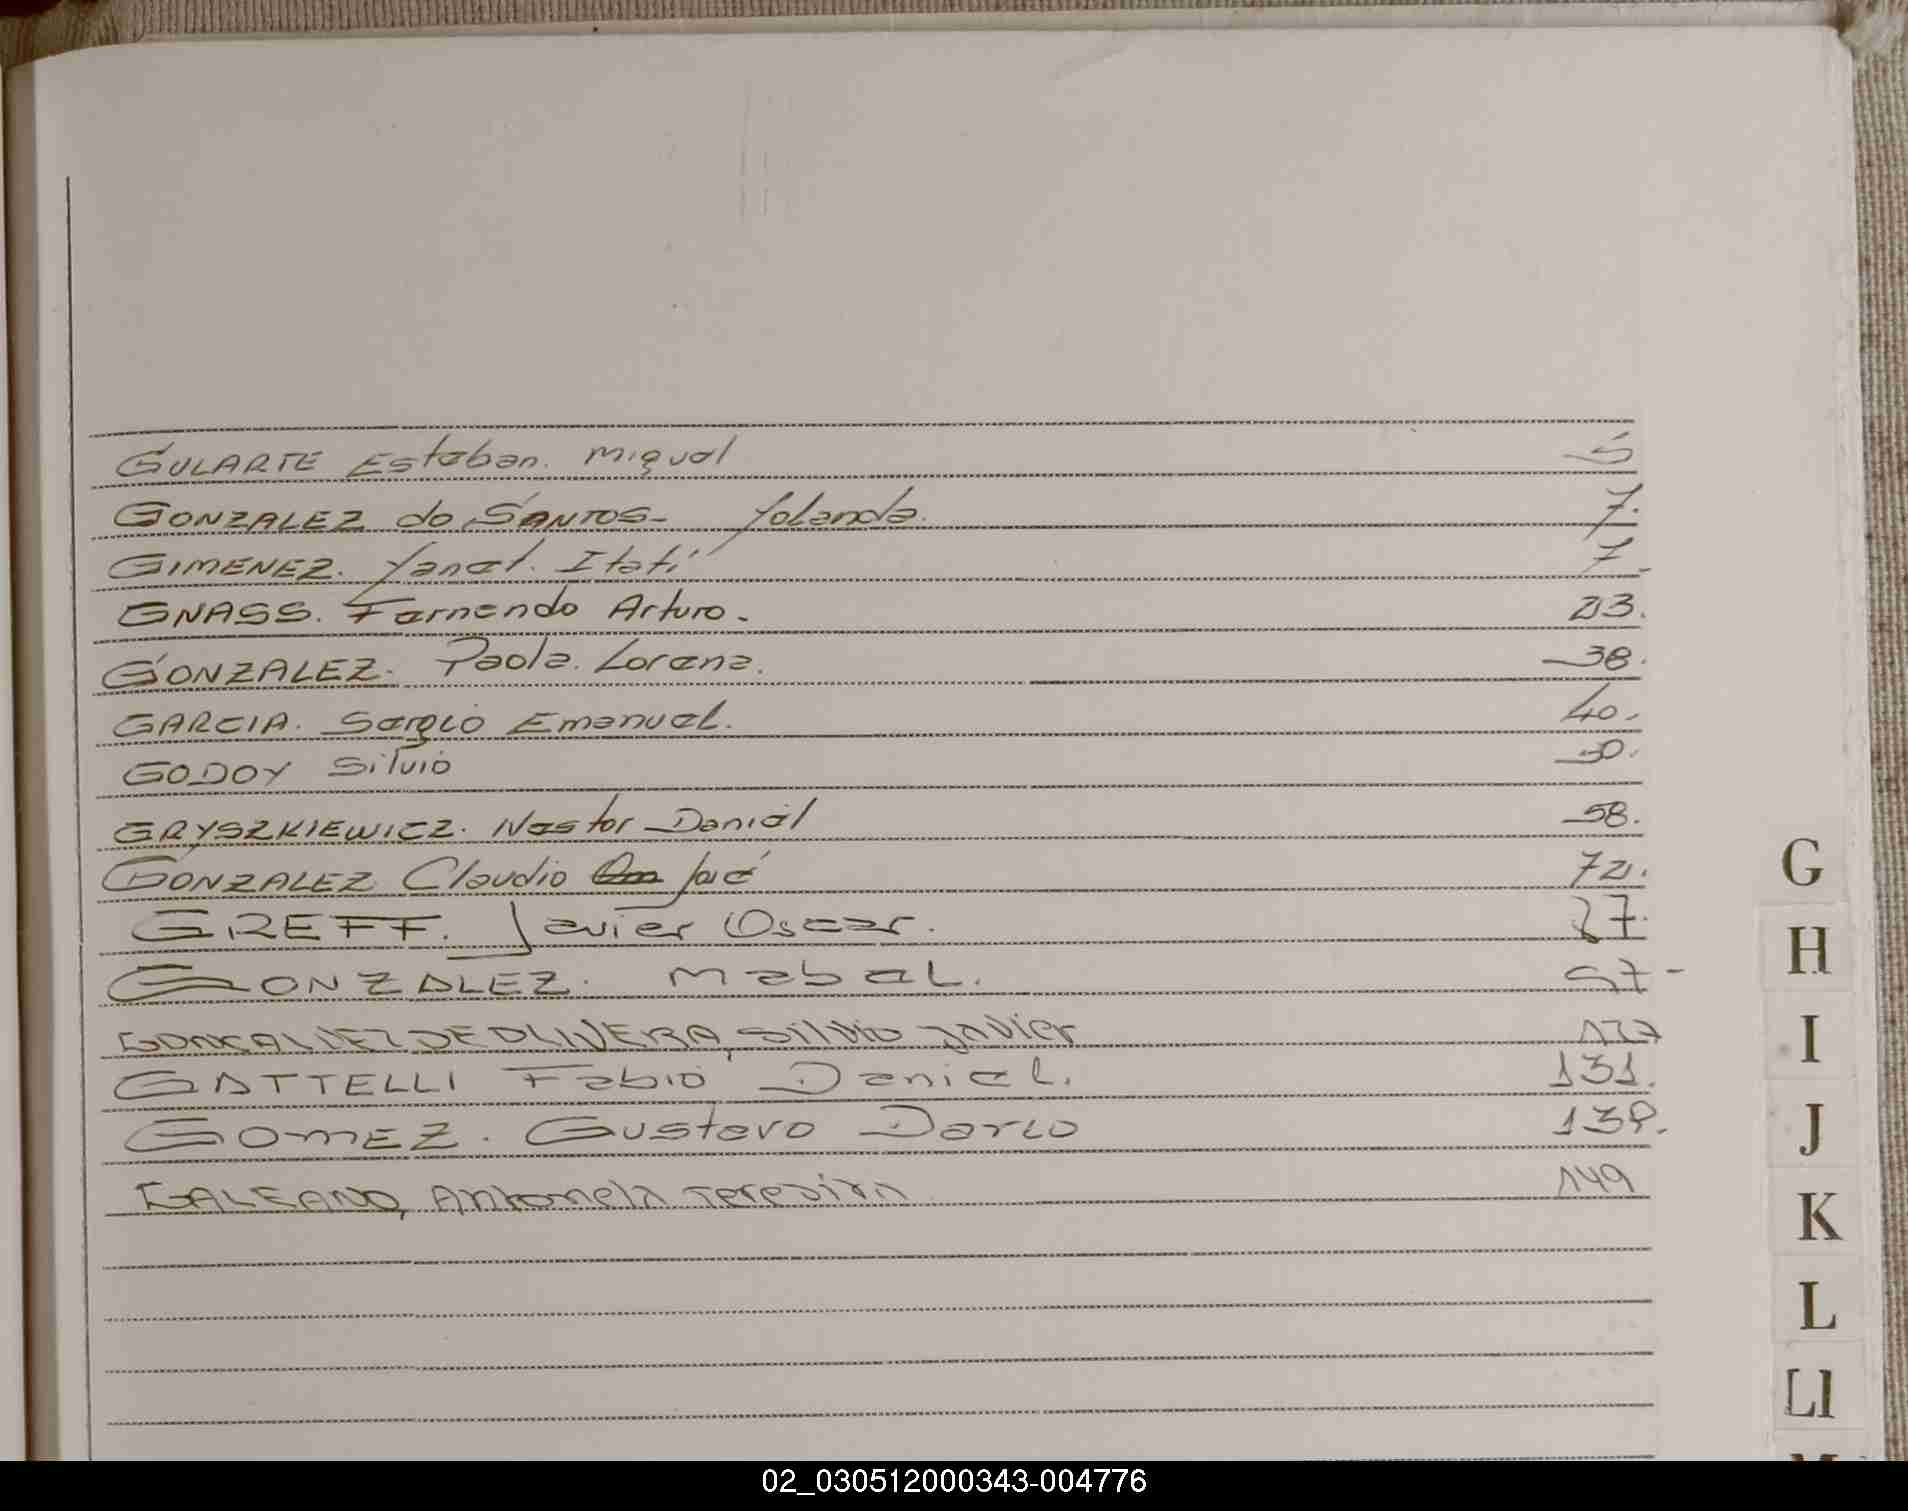 GULARTE Esteban. Miguel 5
GONZALEZ do SANTOS- Yolanda. 7.
GIMENEZ. Yanel. Itatí 7.
GNASS. Fernando Arturo. 23.
GONZALEZ. Paola. Lorena. 38.
GARCIA. Sergio Emanuel. 40.
GODOY Silvio 50.
GRYSZKIEWICZ. Nestor Daniel 58.
GONZALEZ Claudio José 72.
GREFF. Javier Oscar. 87.
GONZALEZ. Mabel. 97-
GONCALVEZ DE OLIVERA, Silvio Javier
GATTELLI Fabio Daniel. 131.
GOMEZ. Gustavo Dario 138.
GALEANO, Antonela Teresita 149
G
H
I
J
K
L
Ll
02_030512000343-004776